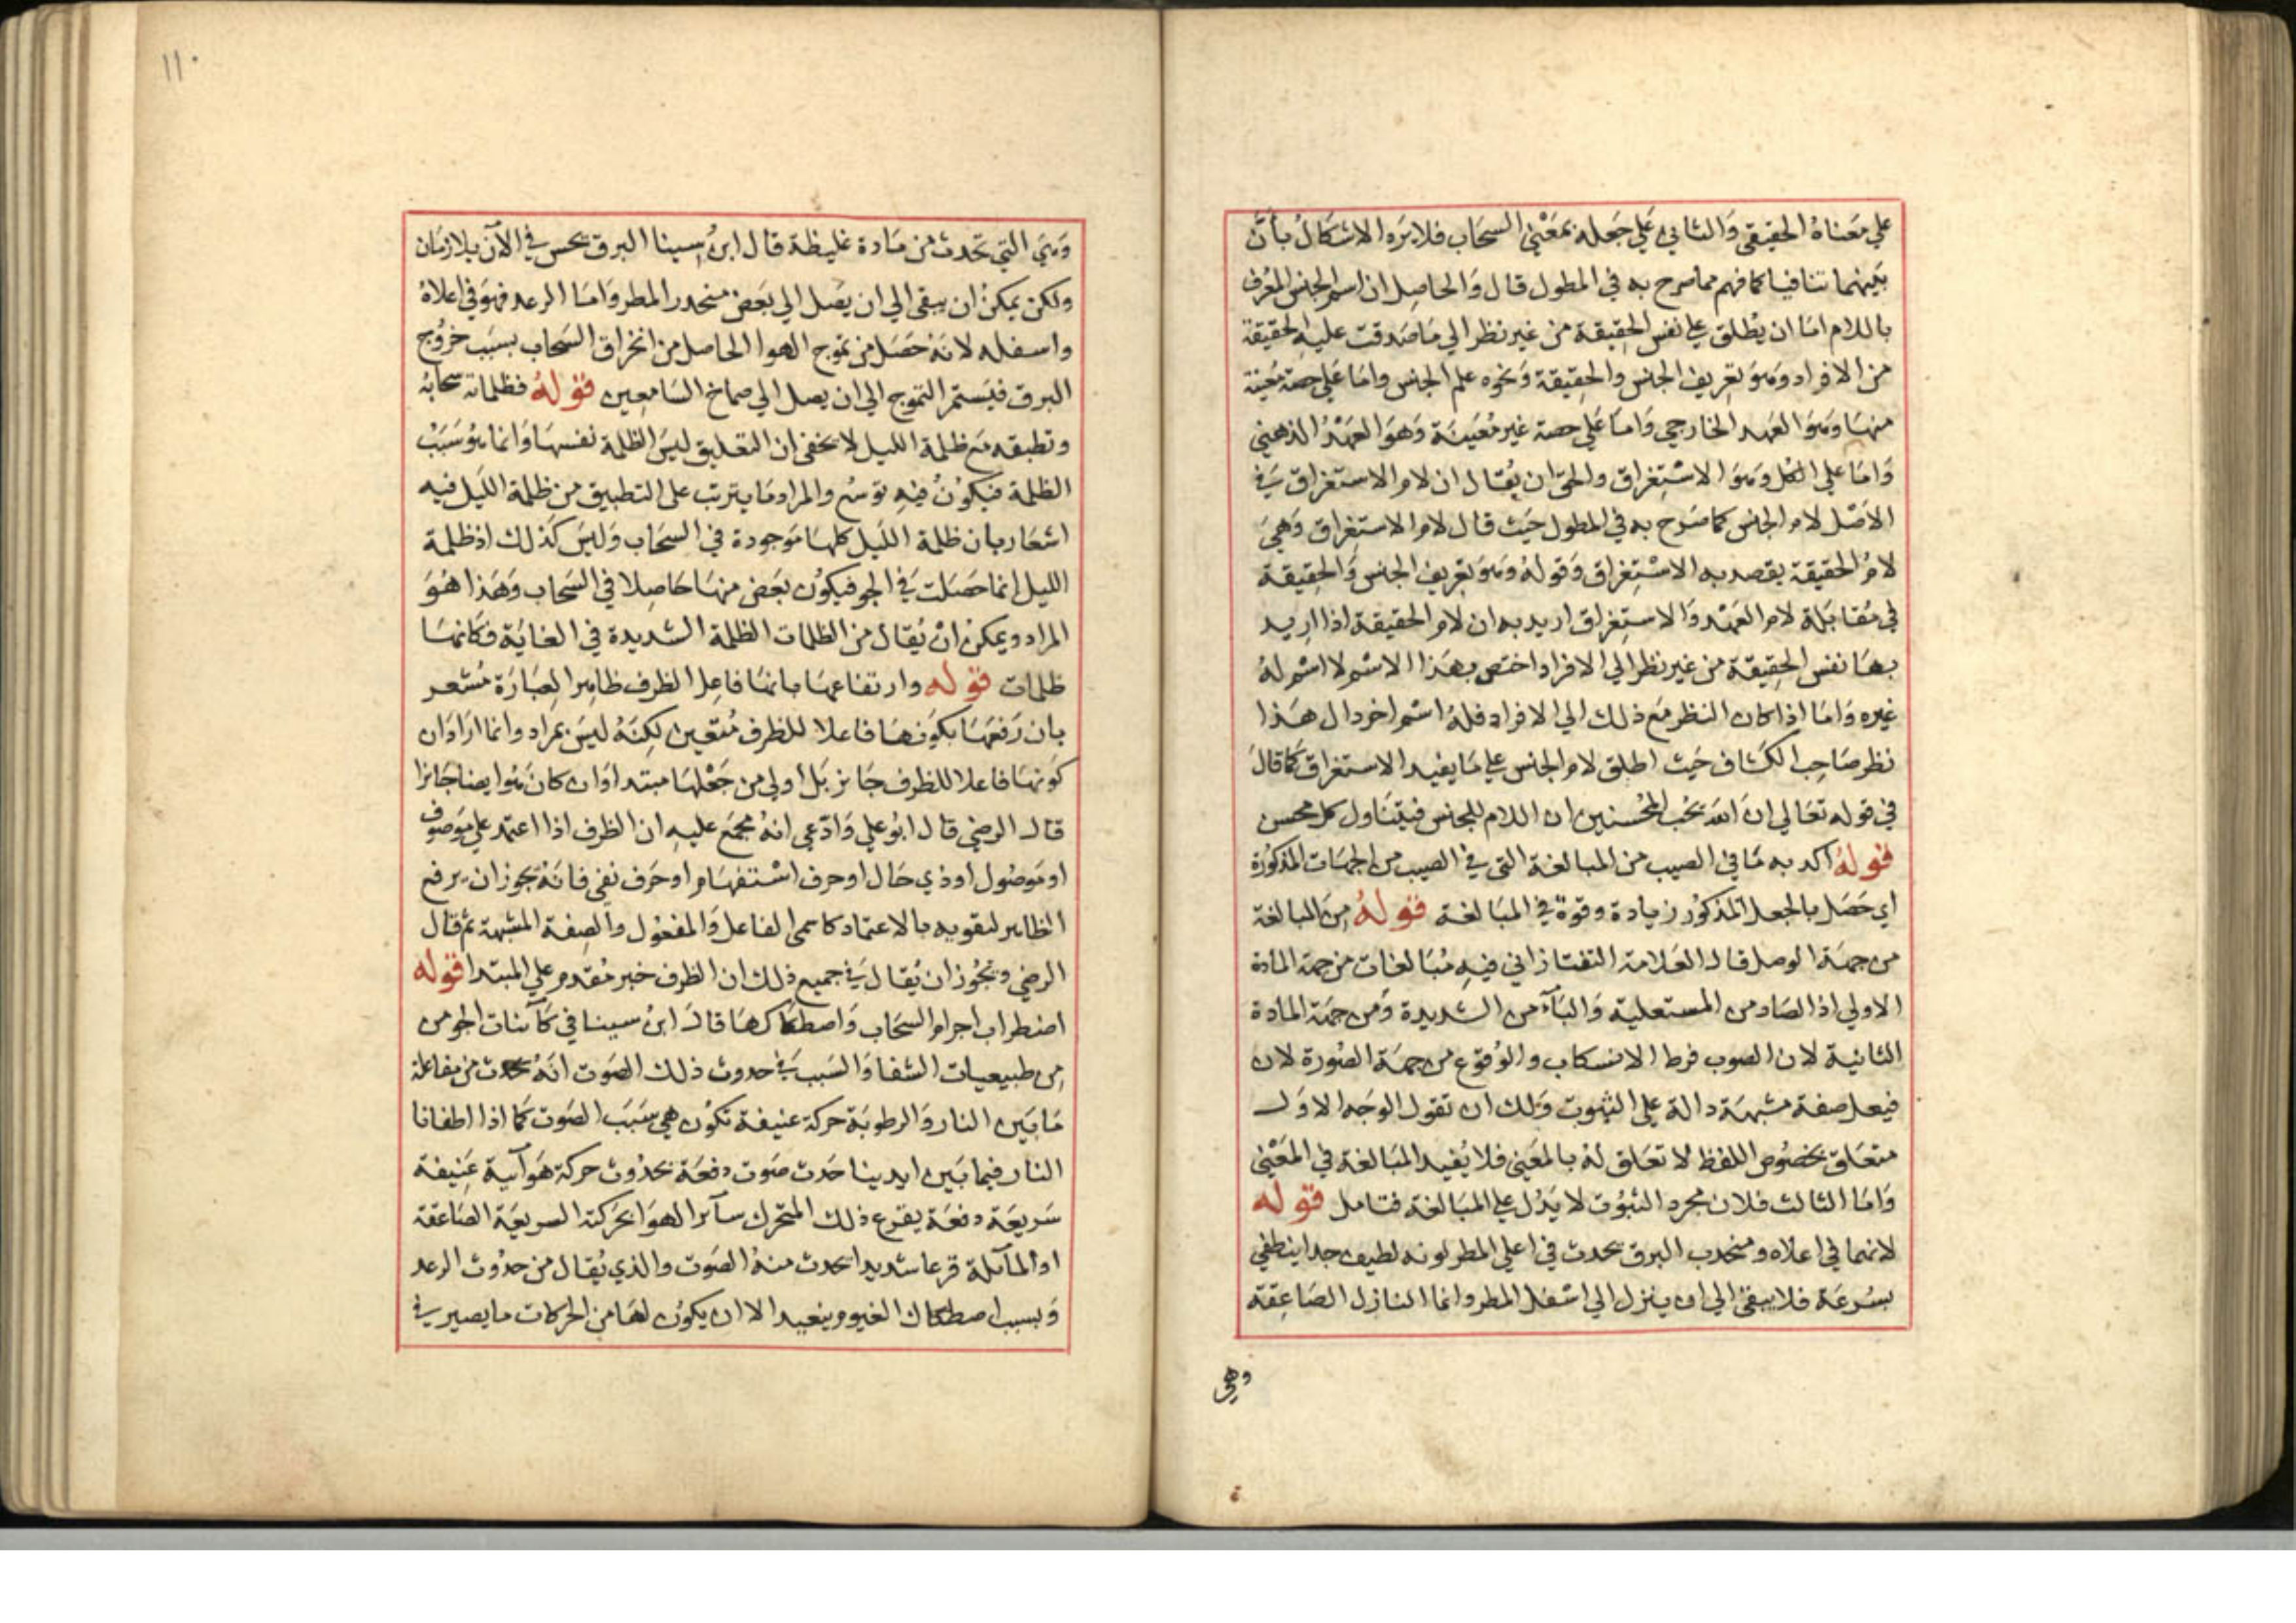 علي معناه الحقيقي والثاني علي جعله بمعني السحاب فلا يرد الاشكال بان
بينهما تنافيا كما فهم مما صرح به في المطول قال والحاصل ان اسم الجنس المعرف
باللام اما ان يطلق علي نفس الحقيقة من غير نظر الي ما صدقت عليه الحقيقة
من الافراد وهو تعريف الجنس والحقيقة ونحوه علم الجنس واما علي حصة معينة
منها وهو العهد الخارجي واما علي حصة غير معينة وهو العهد الذهني
واما علي الكل وهو الاستغراق والحق ان يقال ان لام الاستغراق في
الاصل لام الجنس كما صرح به في المطول حيث قال لام الاستغراق وهي
لام الحقيقة يقصد به الاستغراق وقوله وهو تعريف الجنس والحقيقة
في مقابلة لام العهد والاستغراق اريد به ان لام الحقيقة اذا اريد
بها نفس الحقيقة من غير نظر الي الافراد اختص بهذا الاسم لا اسم له
غيره واما اذا كان النظر مع ذلك الي الافراد فله اسم اخر دال هذا
نظر صاحب الكشاف حيث اطلق لام الجنس علي ما يفيد الاستغراق كما قال
في قوله تعالي ان الله يحب المحسنين ان اللام للجنس فيتناول كل محسن
قوله اكد به ما في الصيب من المبالغة التي في الصيب من الجهات المذكورة
اي حصل بالجعل المذكور زيادة وقوة في المبالغة قوله من المبالغة
من جهة الوصل قال العلامة التفتازاني فيه مبالغات من جهة المادة
الاولي اذ الصاد من المستعلية والباء من الشديدة ومن جهة المادة
الثانية لان الصوب فرط الانسكاب والوقوع من جهة الصورة لان
فيعل صفة مشبهة دالة علي الثبوت ولك ان تقول الوجه الاول
متعلق بخصوص اللفظ لا تعلق له بالمعني فلا يفيد المبالغة في المعني
واما الثالث فلان مجرد الثبوت لا يدل علي المبالغة فتامل قوله
لانهما في اعلاه ومنحدب البرق يحدث في اعلي المطر لونه لطيف جدا ينطفي
بسرعة فلا يبقي الي ان ينزل الي اسفل المطر وانما النازل الصاعقة
وهي
١١٠
وهي التي تحدث من مادة غليظة قال ابن سينا البرق يحس في الآن بلا زمان
ولكن يمكن ان يبقي الي ان يصل الي بعض منحدر المطر واما الرعد فهو في اعلاه
واسفله لانه حصل من تموج الهوا الحاصل من انخراق السحاب بسبب خروج
البرق فيستمر التموج الي ان يصل الي صماخ السامعين قوله فظلماته سحابه
وتطبقه مع ظلمة الليل لا يخفي ان التعليق ليس الظلمة نفسها وانما هو سبب
الظلمة فيكون فيه توسع والمراد ما يترتب علي التطبيق من ظلمة الليل فيه
اشعار بان ظلمة الليل كلها موجودة في السحاب وليس كذلك اذ ظلمة
الليل انما حصلت في الجو فيكون بعض منها حاصلا في السحاب وهذا هو
المراد ويمكن ان يقال من الظلمات الظلمة الشديدة في الغاية فكانها
ظلمات قوله وارتفاعها بانها فاعل الظرف ظاهر العبارة مشعر
بان رفعها بكونها فاعلا للظرف متعين لكنه ليس بمراد وانما اراد ان
كونها فاعلا للظرف جايز بل اولي من جعلها مبتدا وان كان هو ايضا جايزا
قال الرضي قال ابو علي وادعي انه مجمع عليه ان الظرف اذا اعتمد علي موصوف
او موصول او ذي حال او حرف استفهام او حرف نفي فانه يجوز ان يرفع
الظاهر لتقويه بالاعتماد كاسمي الفاعل والمفعول والصفة المشبهة ثم قال
الرضي ويجوز ان يقال في جميع ذلك ان الظرف خبر مقدم علي المبتدا قوله
اضطراب اجرام السحاب واصطكاكها قال ابن سينا في كآئنات الجو من
من طبيعيات الشفا والسبب في حدوث ذلك الصوت انه يحدث من مفاعلة
ما بين النار والرطوبة حركة عنيفة تكون هي سبب الصوت كما اذا اطفانا
النار فيما بين ايدينا حدث صوت دفعة بحدوث حركة هوآئية عنيفة
سريعة دفعة يقرع ذلك المتحرك سآئر الهوا بحركته السريعة الصاعقة
او المآئلة قرعا شديدا يحدث منه الصوت والذي يقال من حدوث الرعد
وبسبب اصطكاك الغيوم ببعيد الا ان يكون لها من الحركات ما يصير في